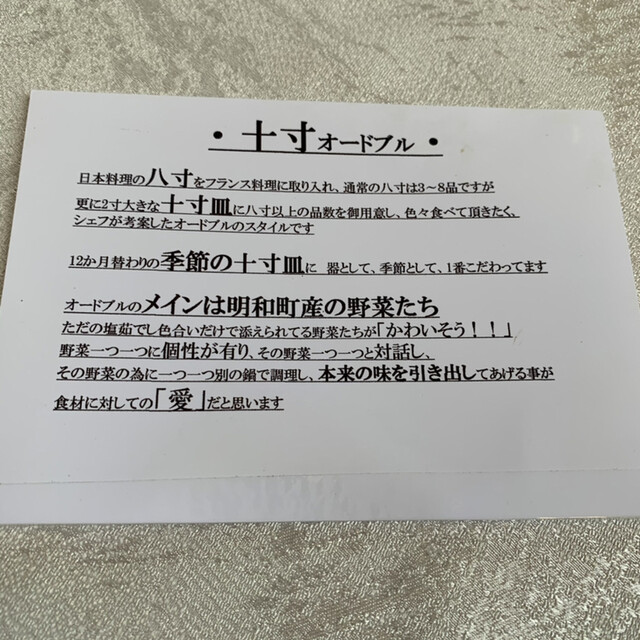 ・十寸オードブル・
日本料理の八寸をフランス料理に取り入れ、通常の八寸は3～8品ですが
更に2寸大きな十寸皿に八寸以上の品数を御用意し、色々食べて頂きたく、
シェフが考案したオードブルのスタイルです
12か月替わりの季節の十寸皿に 器として、季節として、1番こだわってます
オードブルのメインは明和町産の野菜たち
ただの塩茹でし色合いだけで添えられてる野菜たちが「かわいそう！！」
野菜一つ一つに個性が有り、その野菜一つ一つと対話し、
その野菜の為に一つ一つ別の鍋で調理し、本来の味を引き出してあげる事が
食材に対しての「愛」だと思います